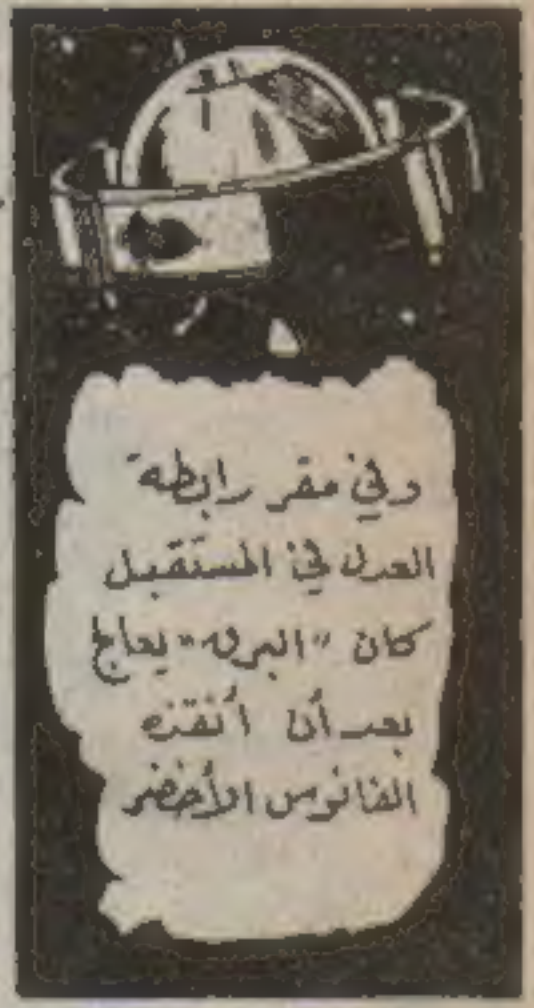 وفي مقر رابطة
العدل في المستقبل
كان "البرق" يعالج
بعد أن أنقذه
الفانوس الأخضر